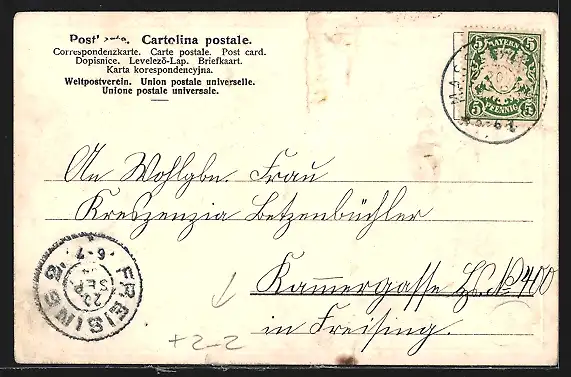 Postkarte. Cartolina postale.
Correspondenzkarte. Carte postale. Post card.
Dopisnice. Levelező-Lap. Briefkaart.
Karta korespondencyjna.
Weltpostverein. Union postale universelle.
Unione postale universale.
5 BAYERN 5
5 PFENNIG 5
An Wohlgbn. Frau
Kreszenzia Betzenbüchler
Kammergasse Hs. № 400
in Freising.
FREISING 2
6-7
22
SEP
+2-2